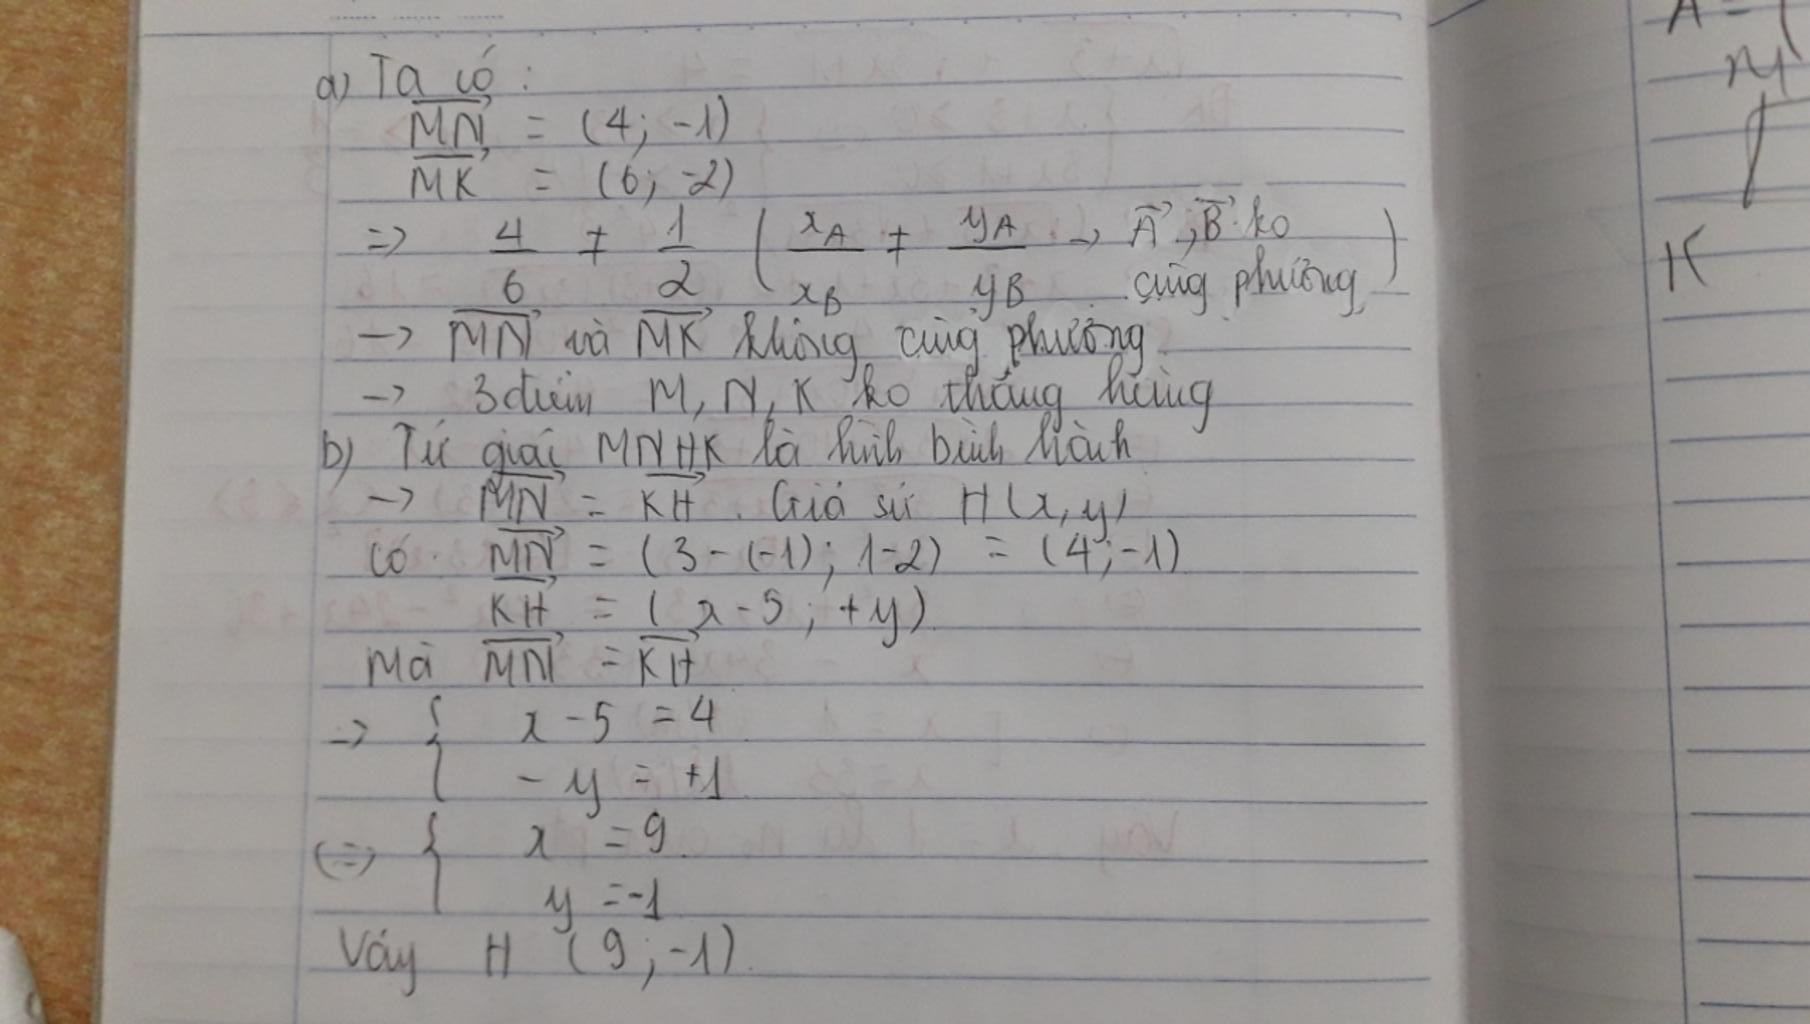 a) Ta có :
MN = (4; -1)
MK = (6; -2)
=> 4/6 ≠ 1/2 ( xA/xB ≠ yA/yB → A, B ko cùng phương )
→ MN và MK không cùng phương
→ 3 điểm M, N, K ko thẳng hàng
b) Tứ giác MNHK là hình bình hành
→ MN = KH . Giả sử H(x, y)
Có MN = (3-(-1); 1-2) = (4; -1)
KH = (x-5; +y)
Mà MN = KH
→ { x - 5 = 4
- y = +1
<=> { x = 9
y = -1
Vậy H (9; -1)
A =
M
K